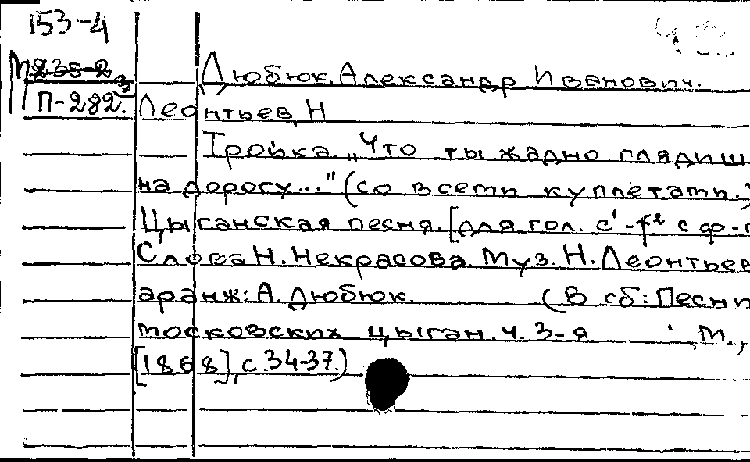 153-4
М235-2
П-282.
Дюбюк, Александр Иванович.
Леонтьев, Н
Тройка. „Что ты жадно глядиш
на дорогу..." (со всеми куплетами.)
Цыганская песня. [для гол. c¹-f² с ф-п
Слова Н. Некрасова. Муз. Н. Леонтьев
аранж: А. Дюбюк. (В сб: Песни
московских цыган. ч. 3-я М.,
[1868], с. 34-37.)